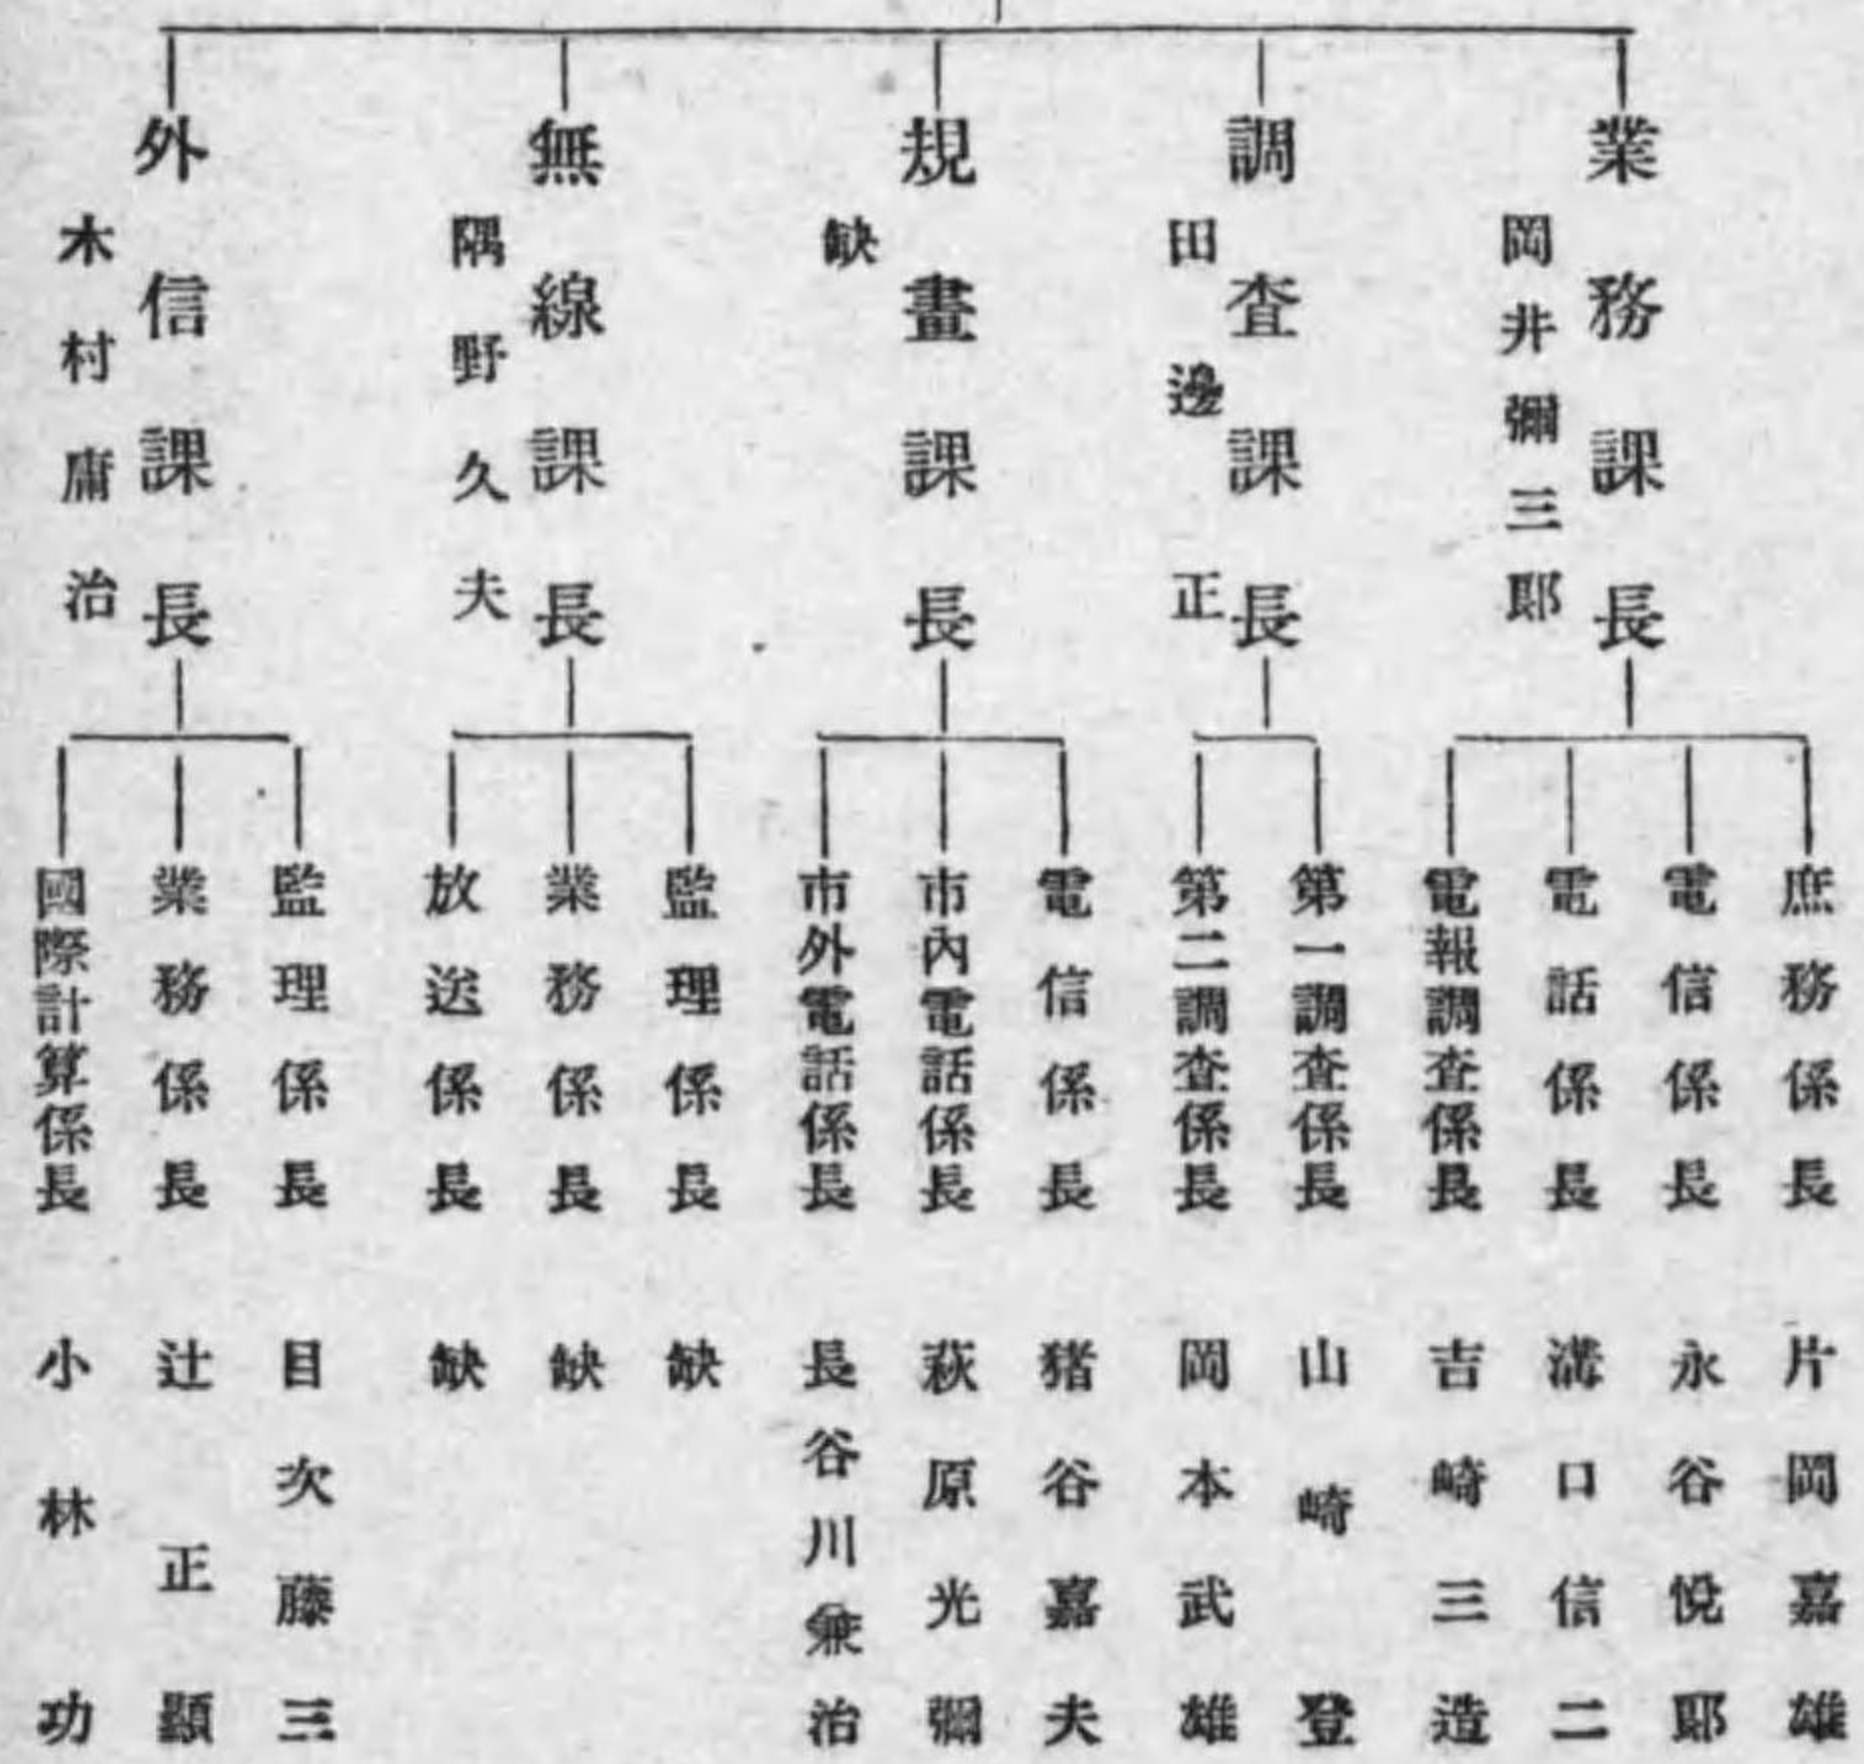 業務課長
岡井彌三郎
庶務係長 片岡嘉雄
電信係長 永谷悅郎
電話係長 溝口信二
電報調査係長 吉崎三造
調査課長
田邊正
第一調査係長 山崎登
第二調査係長 岡本武雄
規畫課長
缺
電信係長 猪谷嘉夫
市內電話係長 萩原光彌
市外電話係長 長谷川兼治
無線課長
隅野久夫
監理係長 缺
業務係長 缺
放送係長 缺
外信課長
木村庸治
監理係長 目次藤三
業務係長 辻正顯
國際計算係長 小林功